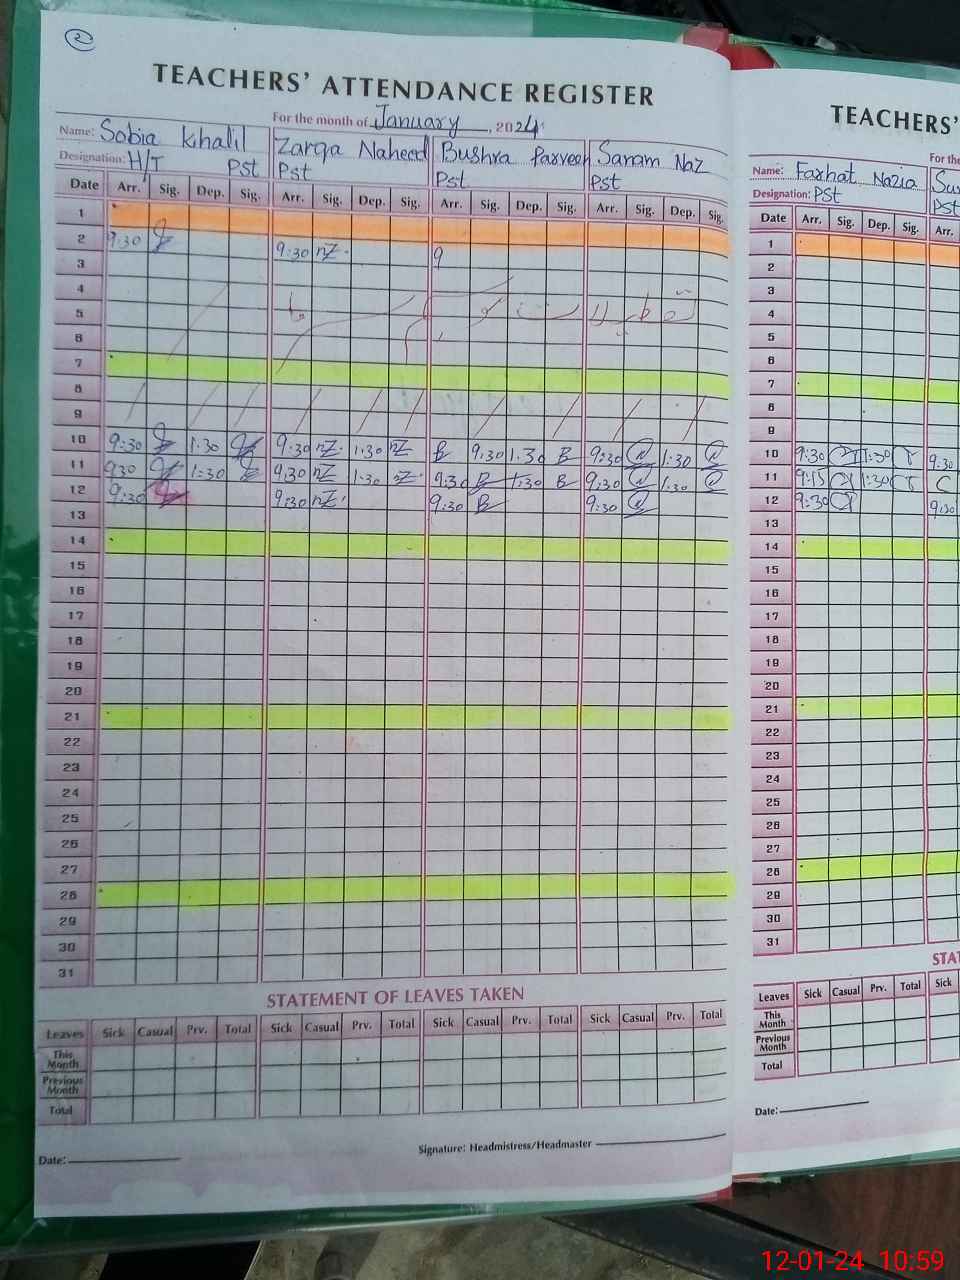 2
TEACHERS' ATTENDANCE REGISTER
For the month of January, 2024
Name: Sobia Khalil Zarqa Naheed Bushra Parveen Sanam Naz
Designation: H/T Pst Pst Pst Pst
Date Arr. Sig. Dep. Sig. Arr. Sig. Dep. Sig. Arr. Sig. Dep. Sig. Arr. Sig. Dep. Sig.
1
2 9:30 9:30 nZ. 9
3
4
5
6
7
8
9
10 9:30 1:30 9:30 nZ. 1:30 nZ B 9:30 1:30 B 9:30 1:30
11 9:30 1:30 9:30 nZ 1:30 nZ. 9:30 B 1:30 B 9:30 1:30
12 9:30 9:30 nZ. 9:30 B 9:30
13
14
15
16
17
18
19
20
21
22
23
24
25
26
27
28
29
30
31
STATEMENT OF LEAVES TAKEN
Leaves Sick Casual Prv. Total Sick Casual Prv. Total Sick Casual Prv. Total Sick Casual Prv. Total
This Month
Previous Month
Total
Date: Signature: Headmistress/Headmaster
TEACHERS'
For the
Name: Farhat Nazia
Designation: PSt Pst
Date Arr. Sig. Dep. Sig. Arr.
1
2
3
4
5
6
7
8
9
10 9:30 1:30 9:30
11 9:15 1:30 C
12 9:30 9:30
13
14
15
16
17
18
19
20
21
22
23
24
25
26
27
28
29
30
31
STAT
Leaves Sick Casual Prv. Total Sick
This Month
Previous Month
Total
Date:
12-01-24 10:59